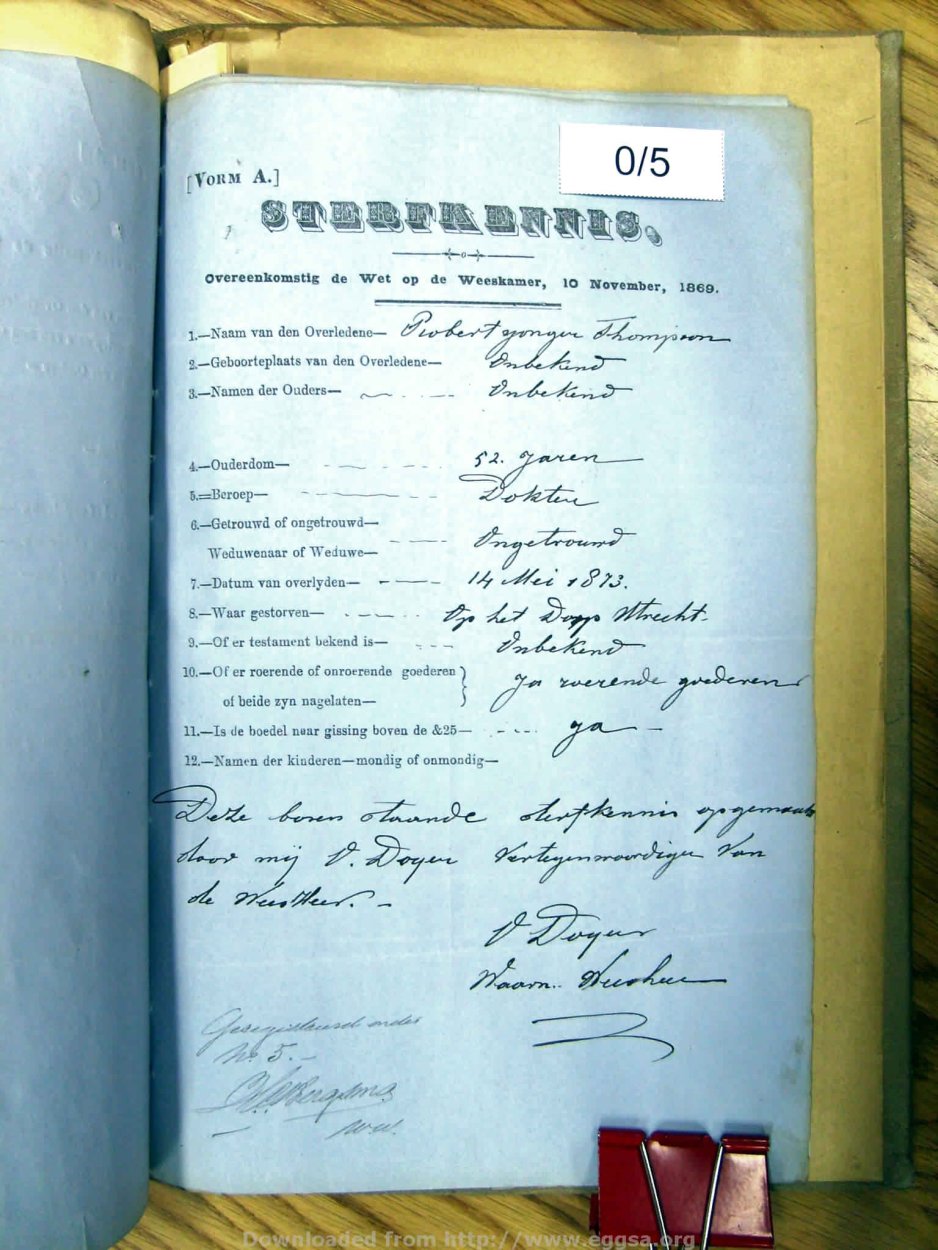 0/5
[VORM A.]
STERFKENNIS.
Overeenkomstig de Wet op de Weeskamer, 10 November, 1869.
1.—Naam van den Overledene— Robert yonger Thompson
2.—Geboorteplaats van den Overledene— Onbekend
3.—Namen der Ouders— Onbekend
4.—Ouderdom— 52. Jaren
5.=Beroep— Dokter
6.—Getrouwd of ongetrouwd—
Weduwenaar of Weduwe— Ongetrouwd
7.—Datum van overlyden— 14 Mei 1873.
8.—Waar gestorven— Op het Dorp Utrecht.
9.—Of er testament bekend is— Onbekend
10.—Of er roerende of onroerende goederen
of beide zyn nagelaten— Ja roerende goederen
11.—Is de boedel naar gissing boven de &25— Ja
12.—Namen der kinderen—mondig of onmondig—
Deze boven staande sterfkennis opgemaakt
door mij V. Doyer Vertegenwoordiger Van
de Weesheer.
V Doyer
Waarn. Weesheer
Geregistreerd onder
No 5.
Downloaded from http://www.eggsa.org